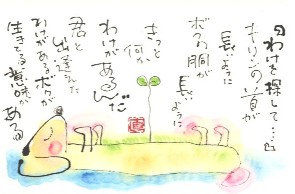 「わけを探して…」
キリンの首が
長いように
ボクの胴が
長いように
きっと
何か
わけが
あるんだ
君と
出逢えた
わけがあるボクが
生きてる意味が
ある